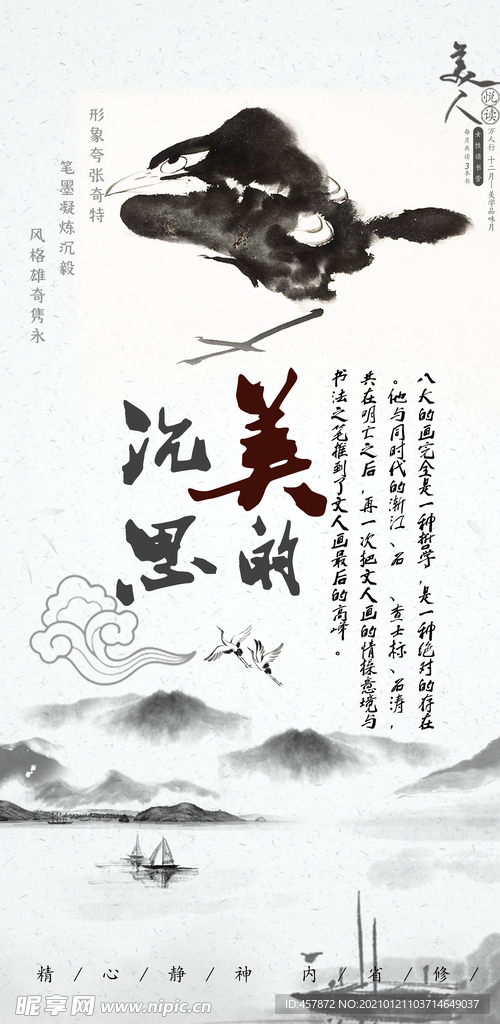 美人
悦读
万人行 十二月 美学品味月
女性读书会
每月共读3本书
形象夸张奇特
笔墨凝炼沉毅
风格雄奇隽永
美的
沉思
八大的画完全是一种哲学，是一种绝对的存在
。他与同时代的渐江、石 、查士标、石涛，
共在明亡之后，再一次把文人画的情操意境与
书法之笔推到了文人画最后的高峰。
精 / 心 / 静 / 神 内 / 省 / 修 /
昵享网 www.nipic.cn
ID:457872 NO:20210121103714649037